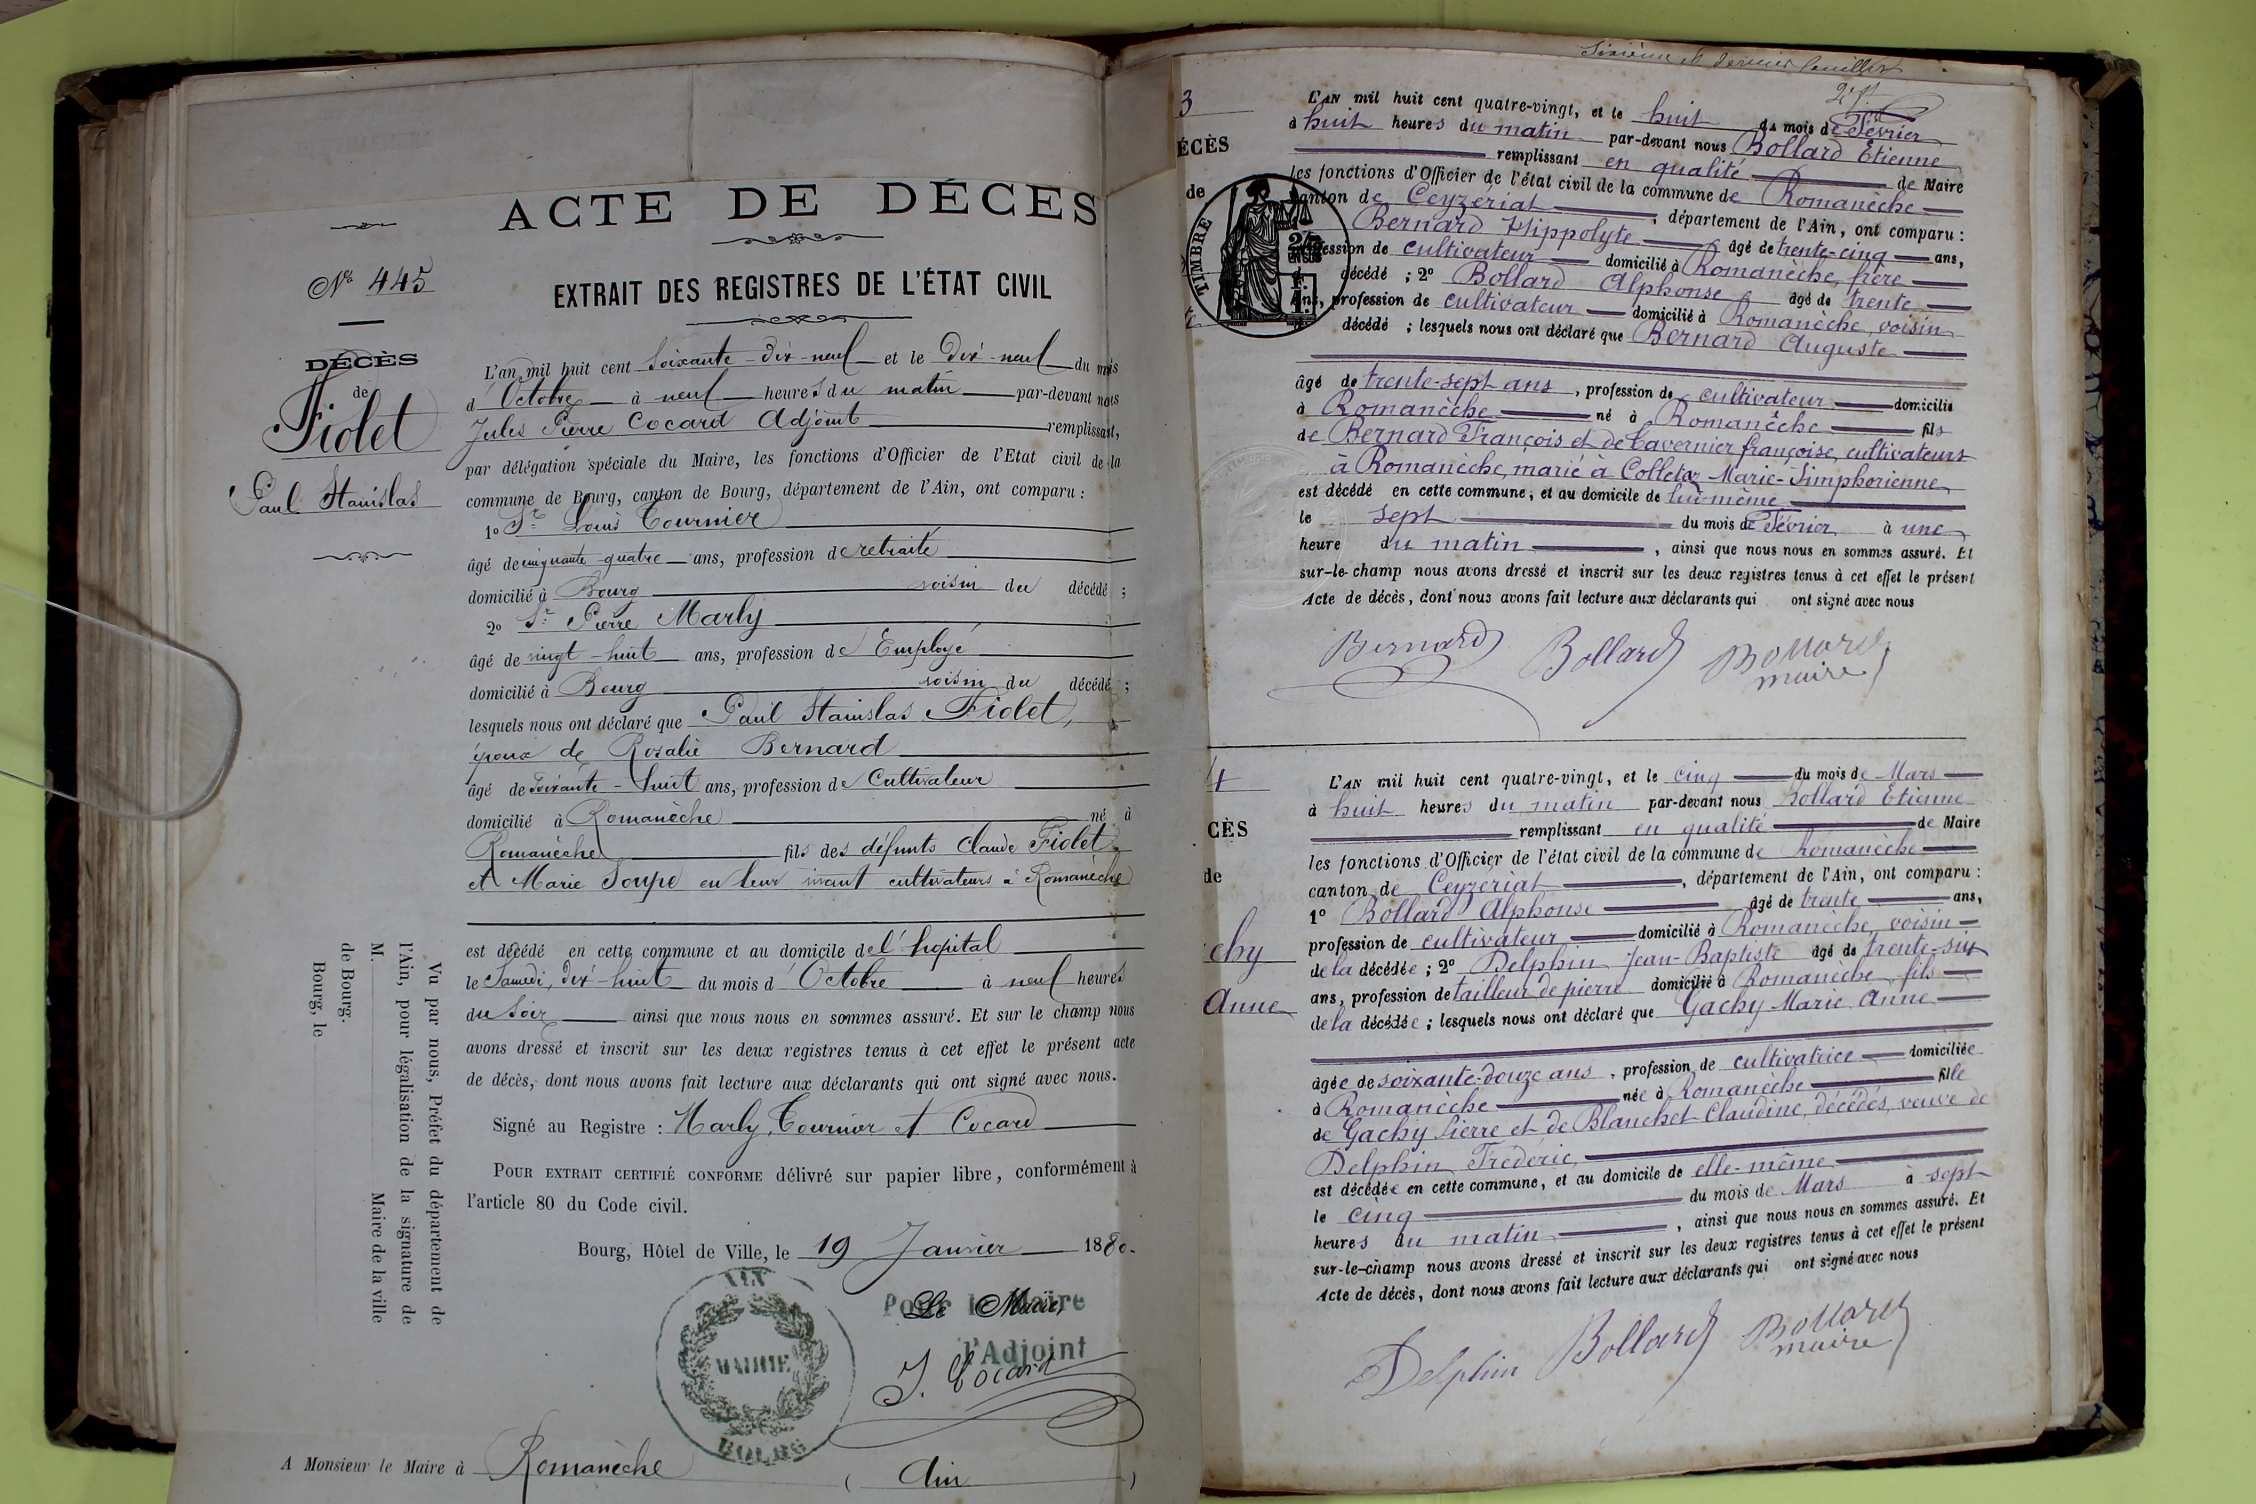 ACTE DE DÉCÈS
EXTRAIT DES REGISTRES DE L'ÉTAT CIVIL
N° 445
DÉCÈS
de
Fiolet
Paul Stanislas
L'an mil huit cent soixante-dix-neuf et le dix-neuf du mois
d'Octobre à neuf heures du matin par-devant nous
Jules Pierre Cocard Adjoint remplissant,
par délégation spéciale du Maire, les fonctions d'Officier de l'Etat civil de la
commune de Bourg, canton de Bourg, département de l'Ain, ont comparu :
1° Sr Louis Tournier
âgé de cinquante-quatre ans, profession de retraité
domicilié à Bourg voisin du décédé ;
2° Sr Pierre Marly
âgé de vingt-huit ans, profession de Employé
domicilié à Bourg voisin du décédé ;
lesquels nous ont déclaré que Paul Stanislas Fiolet,
époux de Rosalie Bernard
âgé de soixante-huit ans, profession de Cultivateur
domicilié à Romanèche né à
Romanèche fils des défunts Claude Fiolet
et Marie Soupe en leur vivant cultivateurs à Romanèche
est décédé en cette commune et au domicile de l'hopital
le Samedi, dix-huit du mois d'Octobre à neuf heures
du soir ainsi que nous nous en sommes assuré. Et sur le champ nous
avons dressé et inscrit sur les deux registres tenus à cet effet le présent acte
de décès, dont nous avons fait lecture aux déclarants qui ont signé avec nous.
Signé au Registre : Marly, Tournier et Cocard
POUR EXTRAIT CERTIFIÉ CONFORME délivré sur papier libre, conformément à
l'article 80 du Code civil.
Bourg, Hôtel de Ville, le 19 Janvier 1880.
Le Maire,
Pour le Maire
l'Adjoint
J. Cocard
AIN
MAIRIE
BOURG
Vu par nous, Préfet du département de
l'Ain, pour légalisation de la signature de
M. Maire de la ville
de Bourg.
Bourg, le
A Monsieur le Maire à Romanèche (Ain)
Sixième et dernier feuillet
3
ÉCÈS
de
TIMBRE
L'AN mil huit cent quatre-vingt, et le huit du mois de Février
à huit heures du matin par-devant nous Bollard Etienne
remplissant en qualité de Maire
les fonctions d'Officier de l'état civil de la commune de Romanèche
canton de Ceyzériat, département de l'Ain, ont comparu :
Bernard Hippolyte âgé de trente-cinq ans,
profession de cultivateur domicilié à Romanèche, frère
décédé ; 2° Bollard Alphonse âgé de trente
ans, profession de cultivateur domicilié à Romanèche, voisin
décédé ; lesquels nous ont déclaré que Bernard Auguste
âgé de trente-sept ans, profession de cultivateur domicilié
à Romanèche né à Romanèche fils
de Bernard François et de Tavernier françoise, cultivateurs
à Romanèche, marié à Colletaz Marie-Simphorienne
est décédé en cette commune, et au domicile de lui-même
le sept du mois de Février à une
heure du matin, ainsi que nous nous en sommes assuré. Et
sur-le-champ nous avons dressé et inscrit sur les deux registres tenus à cet effet le présent
Acte de décès, dont nous avons fait lecture aux déclarants qui ont signé avec nous
Bernard Bollard Bollard
maire
4
CÈS
de
chy
Anne
L'AN mil huit cent quatre-vingt, et le cinq du mois de Mars
à huit heures du matin par-devant nous Bollard Etienne
remplissant en qualité de Maire
les fonctions d'Officier de l'état civil de la commune de Romanèche
canton de Ceyzériat, département de l'Ain, ont comparu :
1° Bollard Alphonse âgé de trente ans,
profession de cultivateur domicilié à Romanèche, voisin
de la décédée ; 2° Delphin Jean-Baptiste âgé de trente-six
ans, profession de tailleur de pierre domicilié à Romanèche, fils
de la décédée ; lesquels nous ont déclaré que Gachy Marie Anne
âgée de soixante-douze ans, profession de cultivatrice domiciliée
à Romanèche née à Romanèche fille
de Gachy Pierre et de Blanchet Claudine, décédés, veuve de
Delphin Fréderic,
est décédée en cette commune, et au domicile de elle-même
le cinq du mois de Mars à sept
heures du matin, ainsi que nous nous en sommes assuré. Et
sur-le-champ nous avons dressé et inscrit sur les deux registres tenus à cet effet le présent
Acte de décès, dont nous avons fait lecture aux déclarants qui ont signé avec nous
Delphin Bollard Bollard
maire